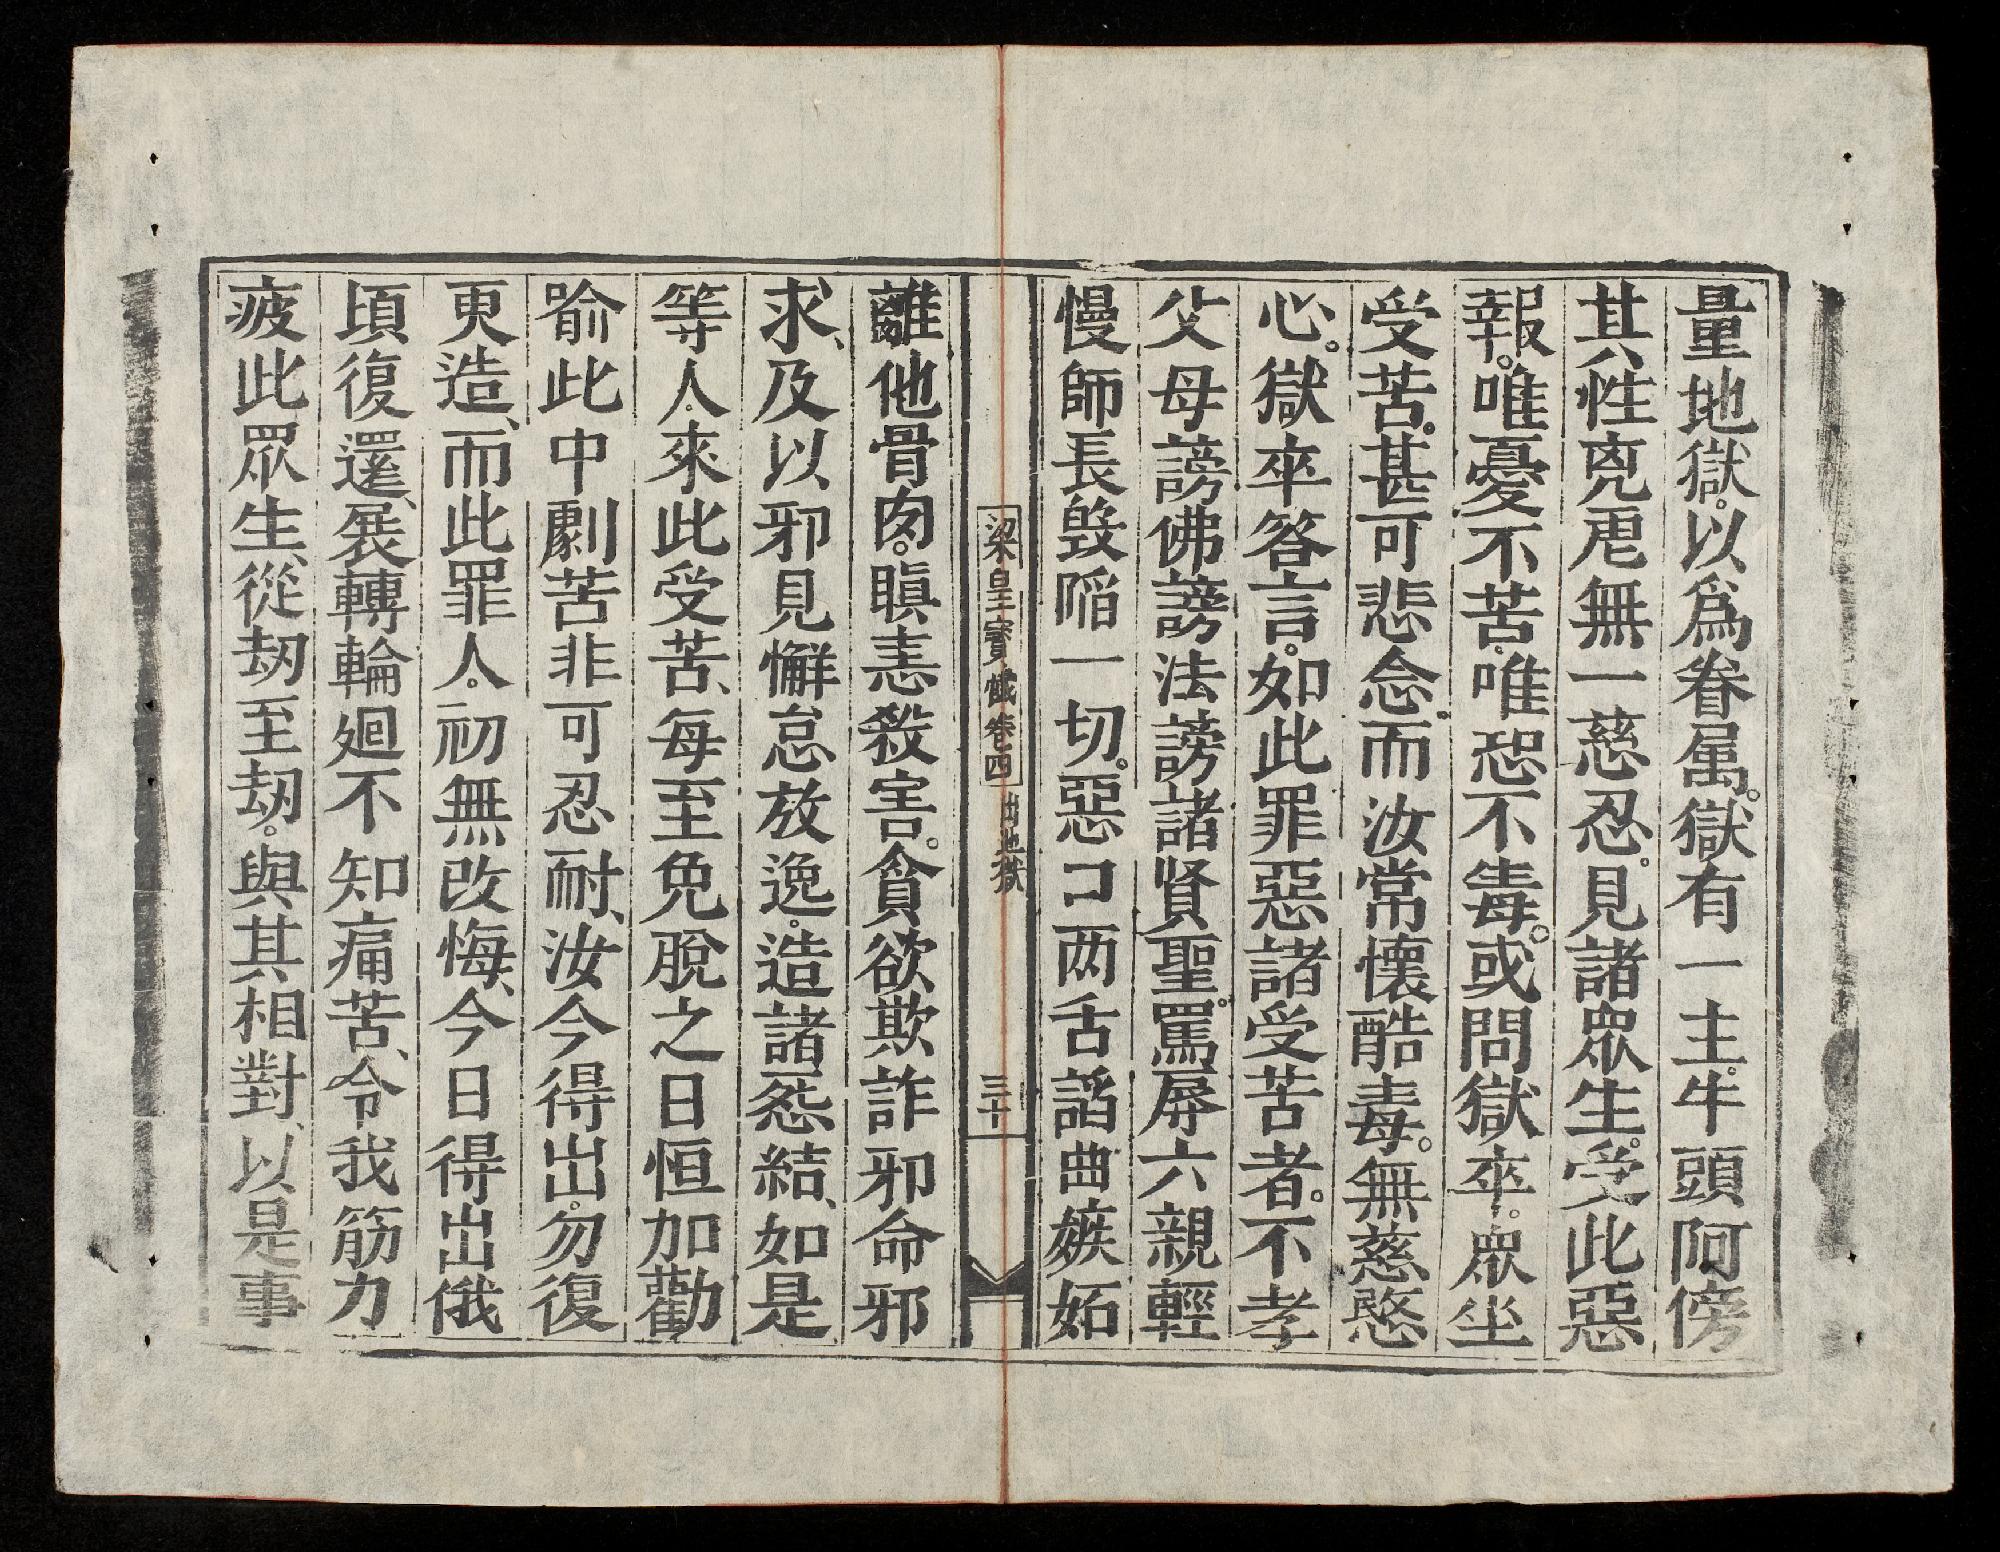 量地獄。以爲眷属。獄有一主。牛頭阿傍
其性兇虐無一慈忍。見諸眾生。受此惡
報。唯憂不苦。唯恐不毒。或問獄卒。眾生
受苦。甚可悲念。而汝常懷酷毒。無慈愍
心。獄卒答言。如此罪惡諸受苦者。不孝
父母謗佛謗法謗諸賢聖。罵辱六親輕
慢師長毀陷一切。惡口两舌謟曲嫉妬
梁皇寶懺卷四 出地獄 三十
離他骨肉。瞋恚殺害。貪欲欺詐邪命邪
求、及以邪見懈怠放逸。造諸怨結、如是
等人。來此受苦、每至免脫之日恒加勸
喻此中劇苦非可忍耐、汝今得出。勿復
更造、而此罪人。初無改悔、今日得出俄
頃復還、展轉輪廻不知痛苦、令我筋力
疲此眾生、從劫至劫。與其相對、以是事